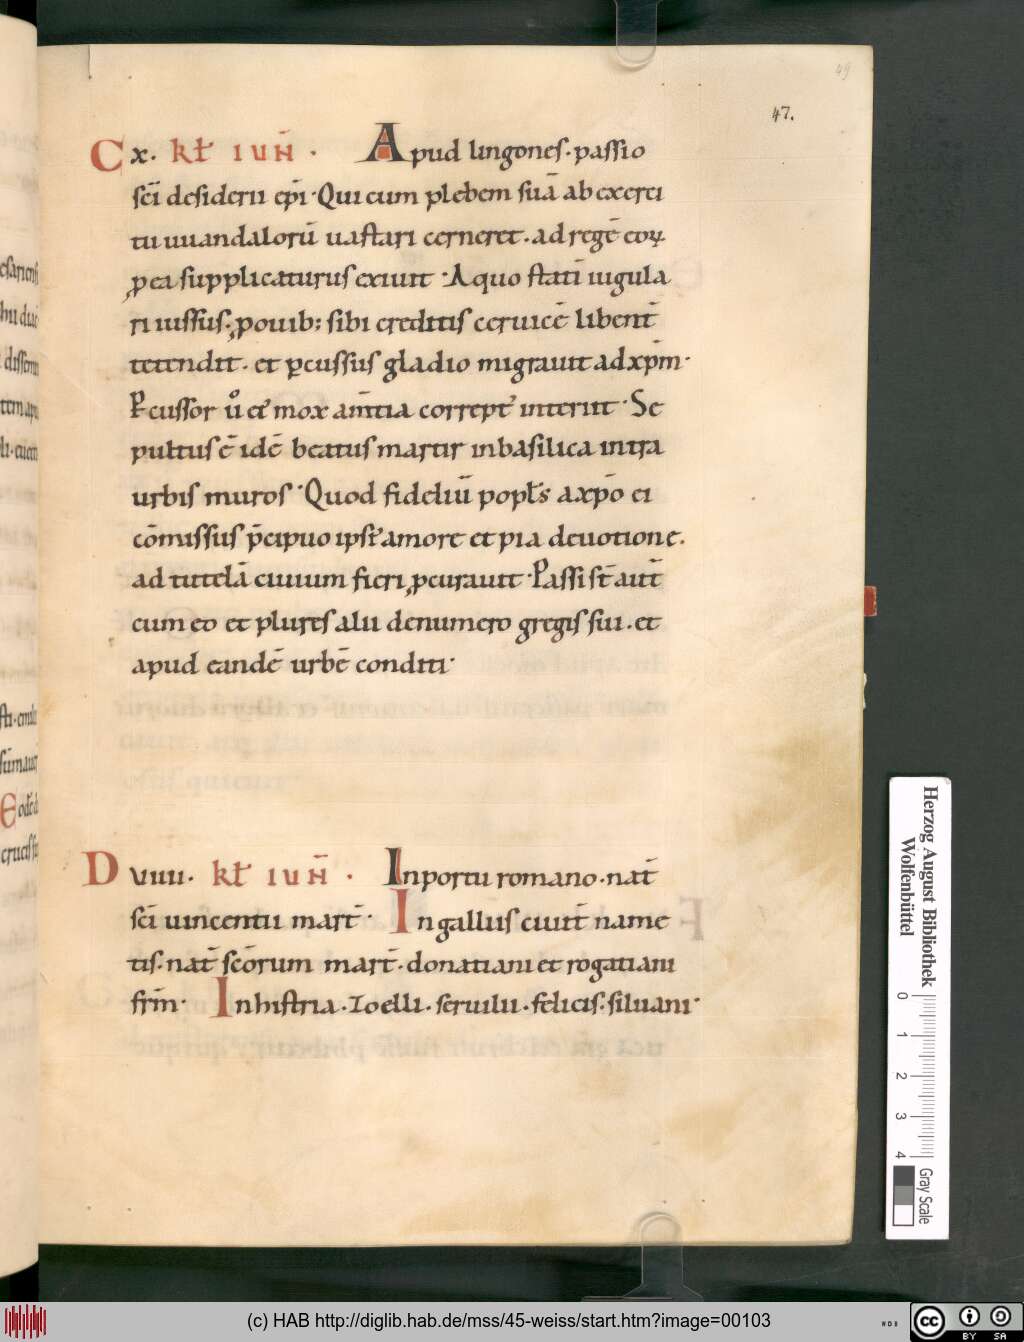 49
47.
C x. kł IUN̄. Apud lingones. passio
sc̄i desiderii ep̄i. Qui cum plebem suā ab exerci
tu uuandalorū uastari cerneret. ad regē eoꝝ
ꝓ ea supplicaturus exiuit. A quo statī iugula
ri iussus. ꝓ ouib; sibi creditis ceruicē libent̄
tetendit. et ꝑcussus gladio migrauit ad xp̄m.
Ꝑcussor ů ei᾽ mox am̄tia corrept᾽ interiit. Se
pultus ē idē beatus martir in basilica intra
urbis muros. Quod fideliū popl̄s a xp̄o ei
cōmissus p̄cipuo ipsi᾽ amore et pia deuotione.
ad tutelā ciuium fieri ꝓcurauit. Passi st̄ aut̄
cum eo et plures alii de numero gregis sui. et
apud eandē urbē conditi.
D VIIII. kł IUN̄. In portu romano. nat̄
sc̄i uincentii mart̄. In galliis ciuit̄ name
tis. nat̄ sc̄orum mart̄. donatiani et rogatiani
frm̄. In histria. Ioelli. seruilii. felicis. siluani.
Herzog August Bibliothek
Wolfenbüttel
0 1 2 3 4
Gray Scale
(c) HAB http://diglib.hab.de/mss/45-weiss/start.htm?image=00103
WDB
cc BY SA